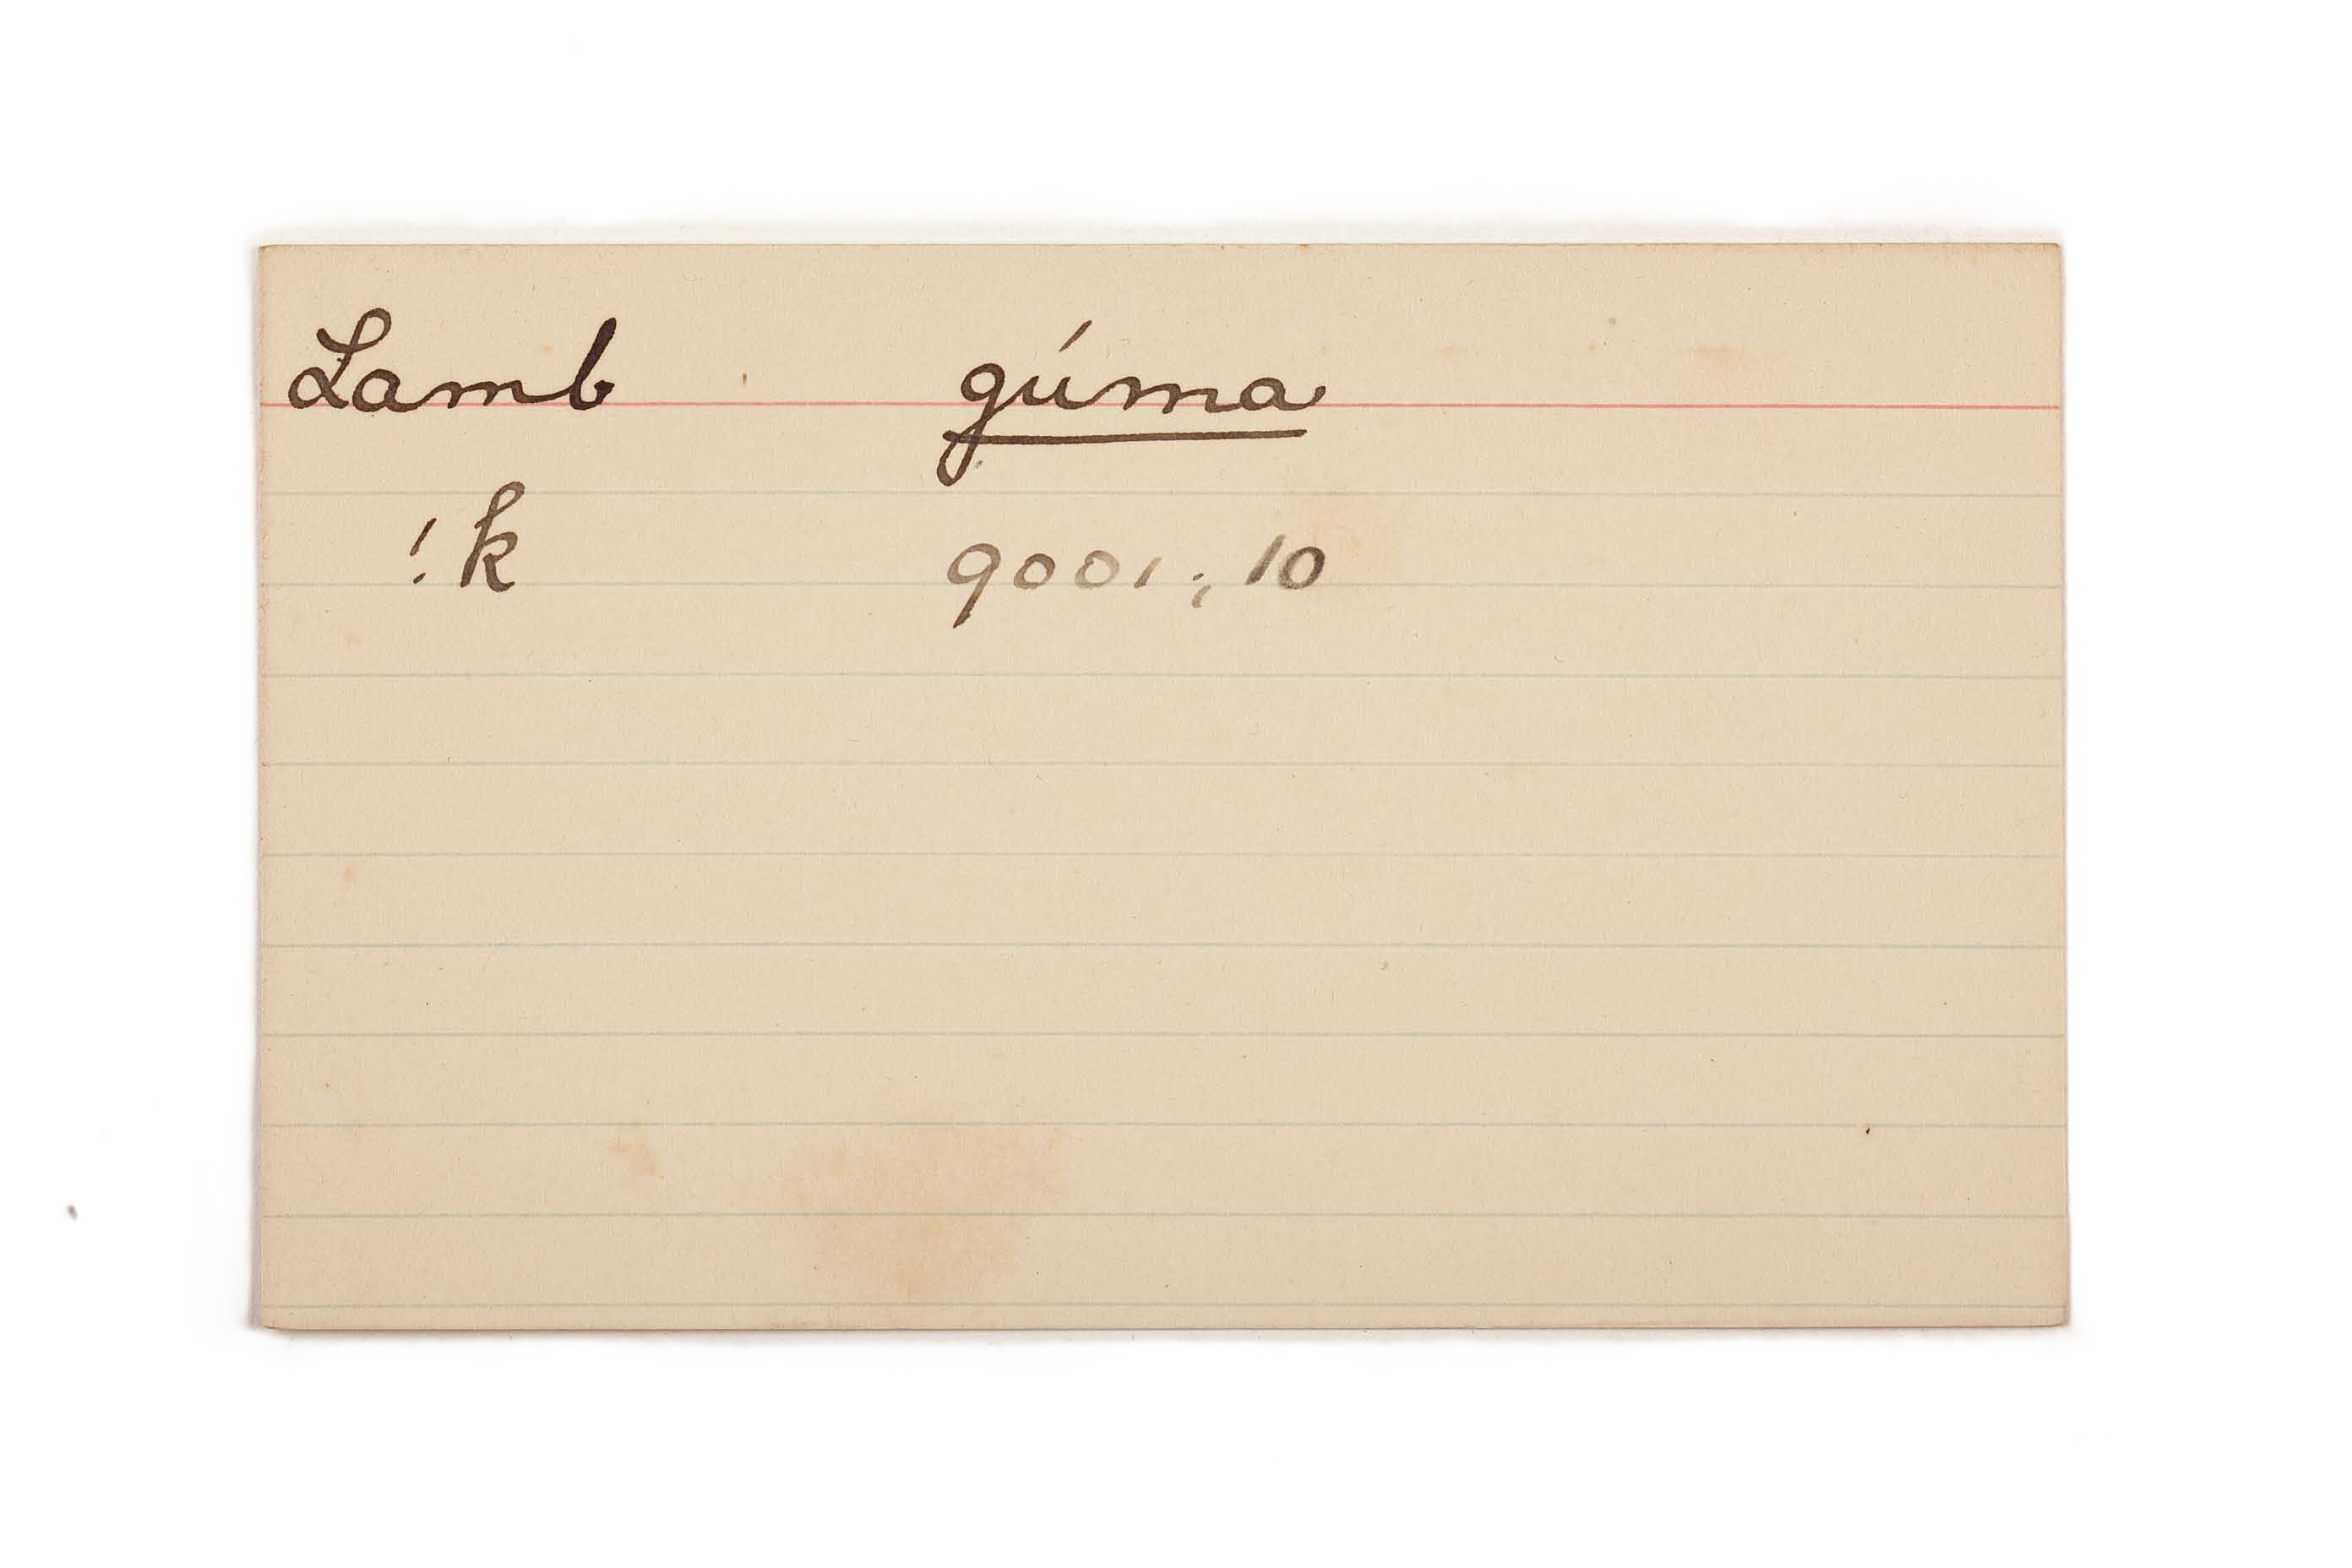 Lamb gúma
!k 9001; 10